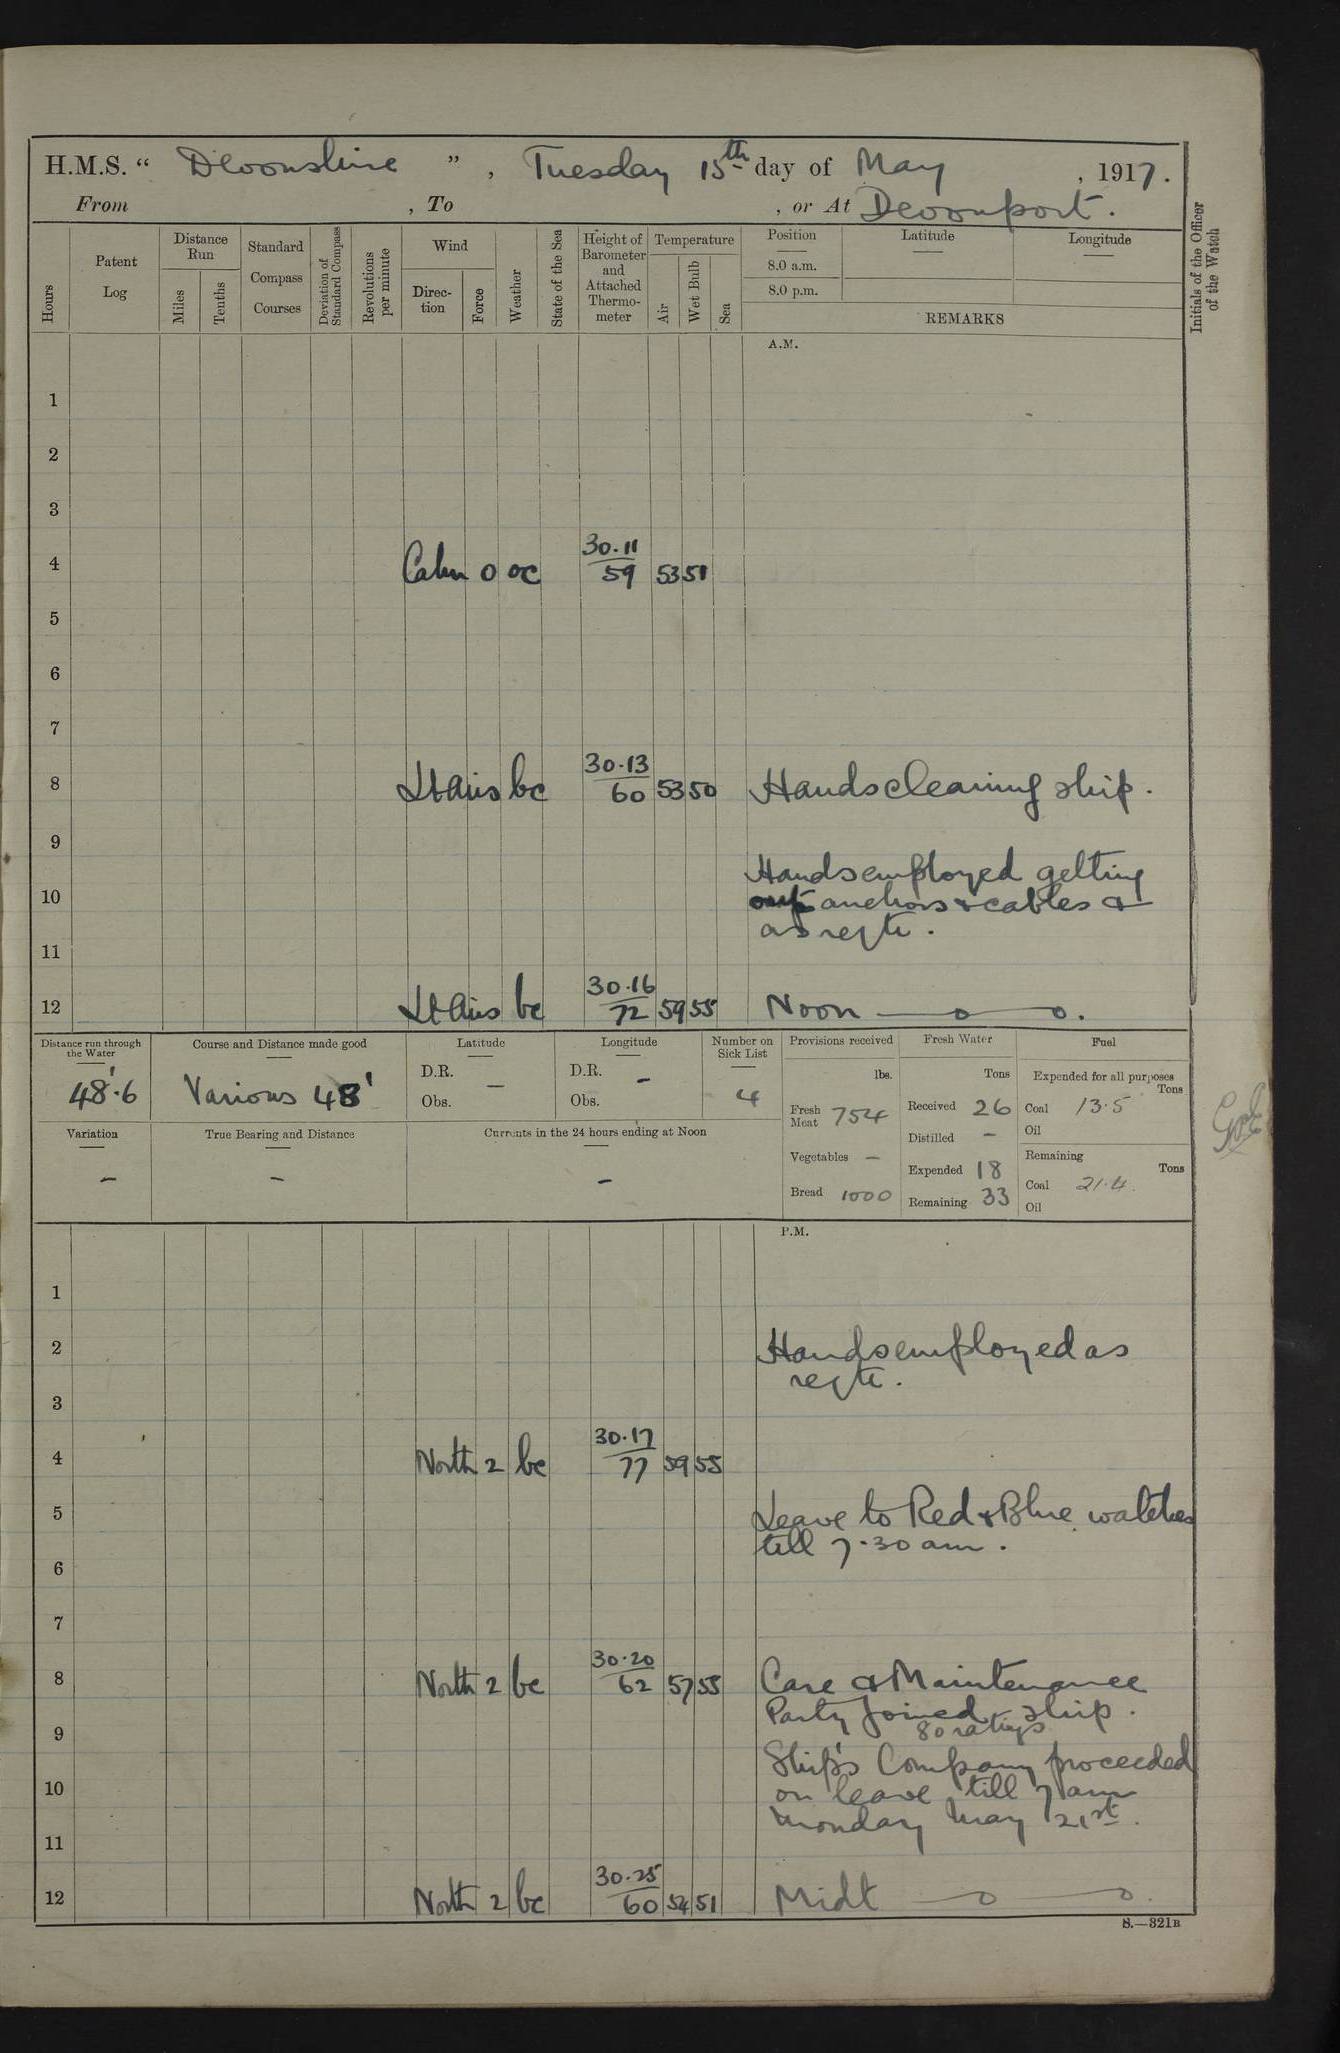 H.M.S. “ Devonshire ” , Tuesday 15th day of May , 1917.
From , To , or At Devonport.
Hours
Patent Log
Distance Run
Miles
Tenths
Standard Compass Courses
Deviation of Standard Compass
Revolutions per minute
Wind
Direction
Force
Weather
State of the Sea
Height of Barometer and Attached Thermometer
Temperature
Air
Wet Bulb
Sea
Position
8.0 a.m.
8.0 p.m.
Latitude
Longitude
REMARKS
Initials of the Officer of the Watch
A.M.
1
2
3
4 Calm 0 oc 30.11/59 53 51
5
6
7
8 Lt airs bc 30.13/60 53 50 Hands cleaning ship.
9
Hands employed getting
10 anchors & cables &
as reqte.
11
12 Lt airs bc 30.16/72 59 55 Noon
Distance run through the Water
48'.6
Course and Distance made good
Various 48'
Latitude
D.R. –
Obs.
Longitude
D.R. –
Obs.
Number on Sick List
4
Provisions received
lbs.
Fresh Meat 754
Vegetables –
Bread 1000
Fresh Water
Tons
Received 26
Distilled –
Expended 18
Remaining 33
Fuel
Expended for all purposes
Tons
Coal 13.5
Oil
Remaining
Tons
Coal 21.4
Oil
Variation
–
True Bearing and Distance
–
Currents in the 24 hours ending at Noon
–
P.M.
1
2 Hands employed as
reqte.
3
4 North 2 bc 30.17/77 59 55
5 Leave to Red & Blue watches
till 7.30 am.
6
7
8 North 2 bc 30.20/62 57 55 Care & Maintenance
Party joined ship.
9 80 ratings
Ship's Company proceeded
10 on leave till 7 am
Monday May 21st.
11
12 North 2 bc 30.25/60 54 51 Midt
S.—321B